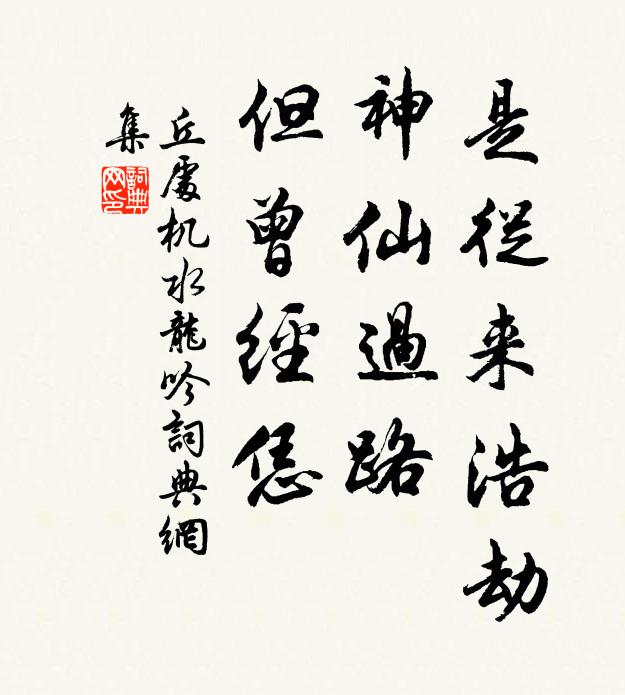 是從来浩劫
神仙過路
但曾經恁
丘處机水龍吟詞典網
集
詞典网印